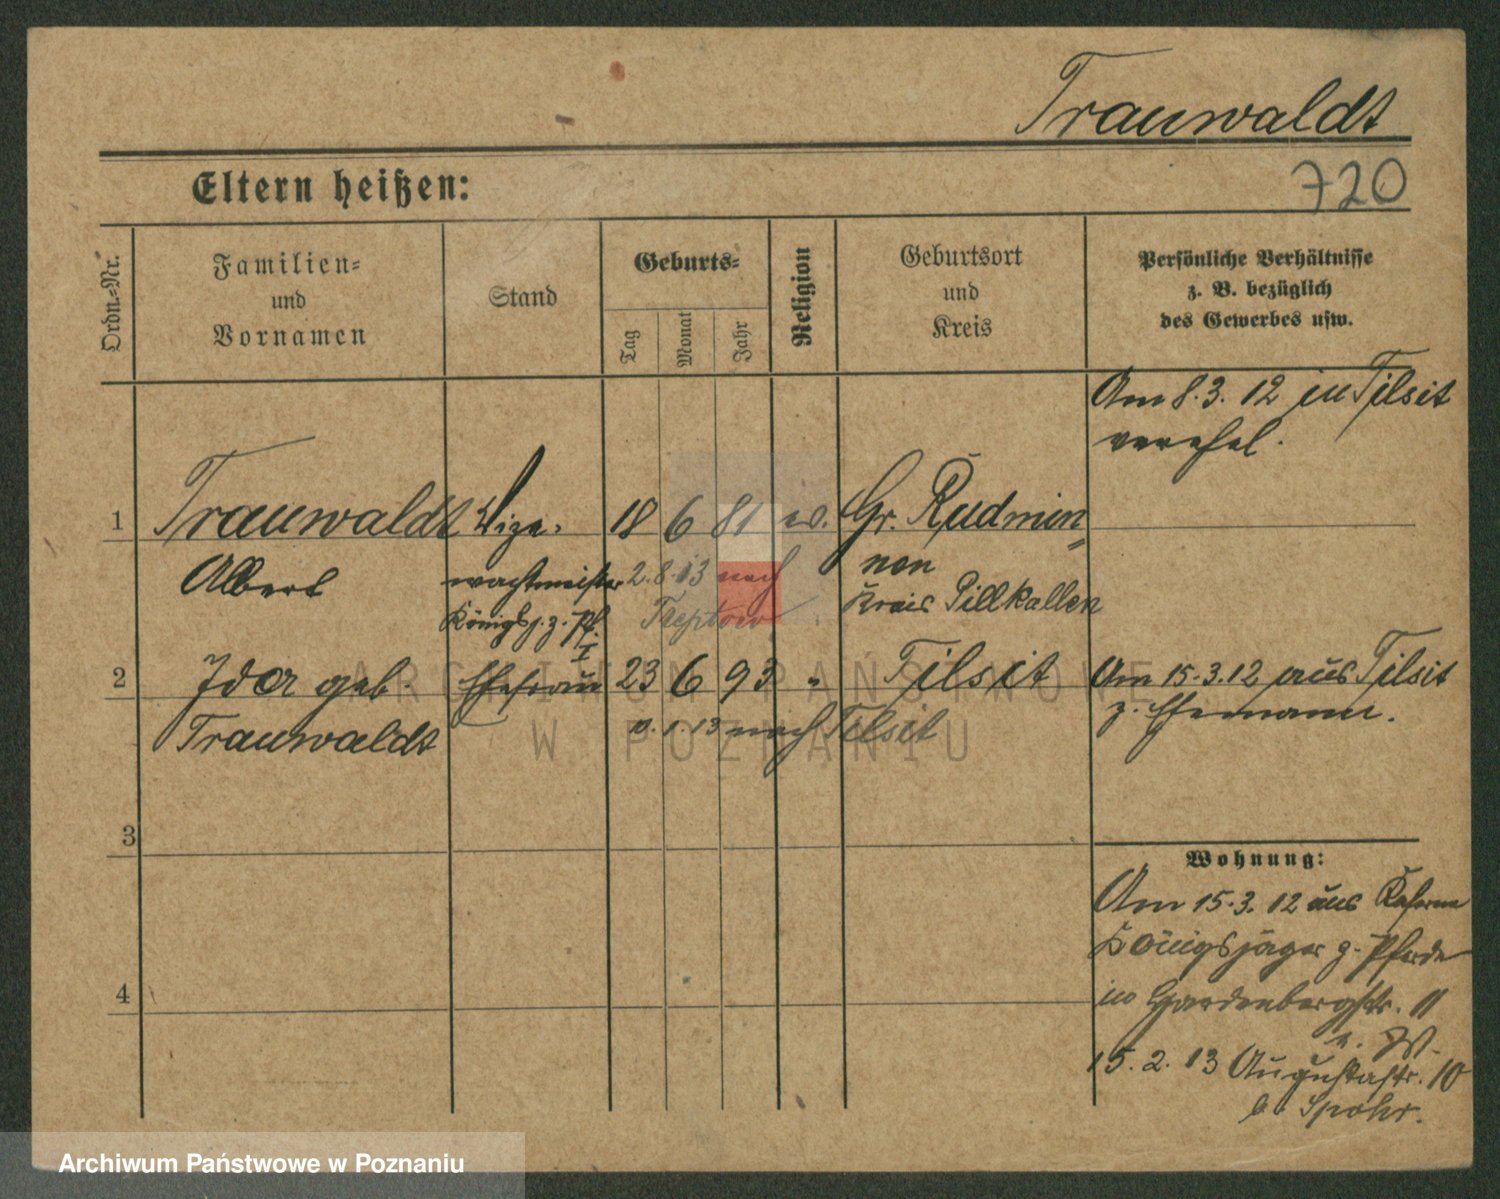 Trauwaldt
720
Eltern heißen:
Ordn.-Nr.
Familien-
und
Vornamen
Stand
Geburts-
Tag
Monat
Jahr
Religion
Geburtsort
und
Kreis
Persönliche Verhältnisse
z. B. bezüglich
des Gewerbes usw.
Am 8.3.12 in Tilsit
verehel.
1 Trauwaldt Vize- 18 6 81 ev. Gr. Rudmin=
nen
Albert wachtmeister 2.8.13 nach
Kreis Pillkallen
Königsj. z. Pf. Treptow
I
2 Ida geb. Ehefrau 23 6 93 " Tilsit Am 15.3.12 aus Tilsit
z. Ehemann.
Trauwaldt 1.13 nach Tilsit
3
Wohnung:
Am 15.3.12 aus Kaserne
Königsjäger z. Pferde
in Hardenbergstr. 11
4
15.2.13 Augustastr. 10
b. Spohr.
ARCHIWUM PAŃSTWOWE
W POZNANIU
Archiwum Państwowe w Poznaniu